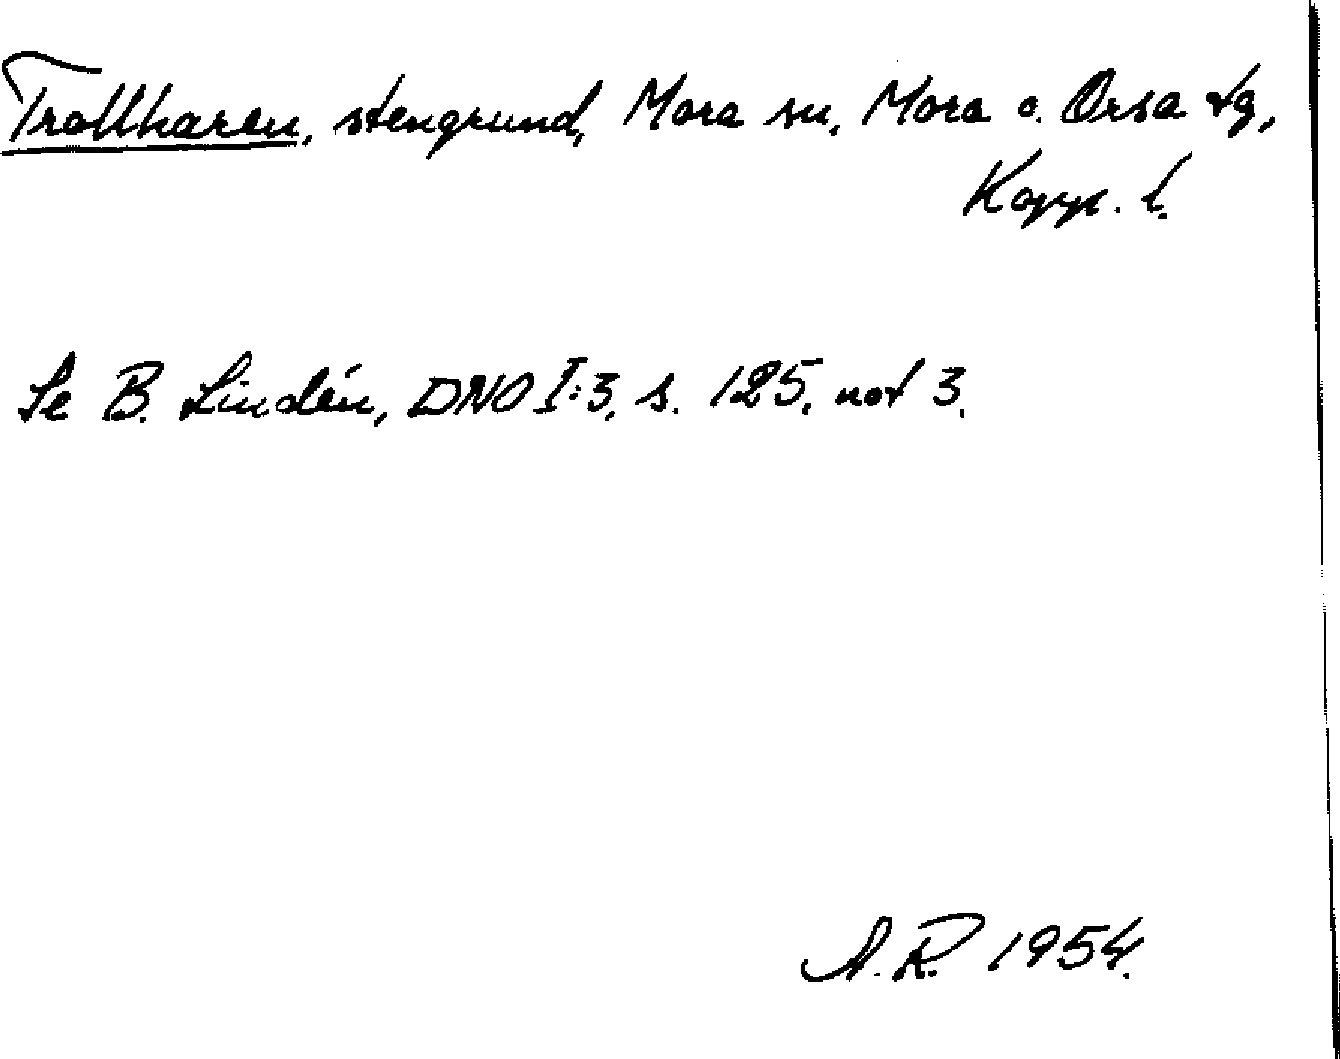 Trollharen, stengrund, Mora sn, Mora o. Orsa tg,
Kopp. l.
Se B. Lindén, DNO I:3, s. 125, not 3.
A.R. 1954.